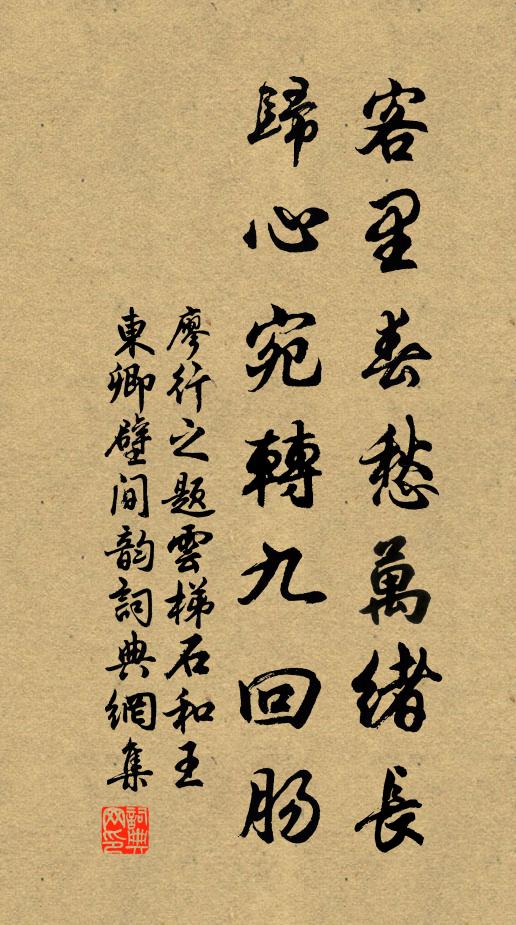 客里春愁萬緒長
歸心宛轉九回腸
廖行之題雲梯石和王
東卿壁间韵詞典網集
詞典網印